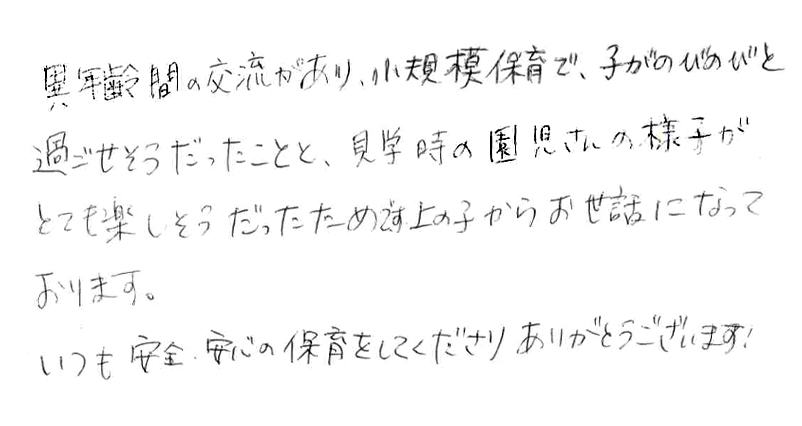 異年齢間の交流があり、小規模保育で、子がのびのびと
過ごせそうだったことと、見学時の園児さんの様子が
とても楽しそうだったためです上の子からお世話になって
おります。
いつも安全・安心の保育をしてくださりありがとうございます!